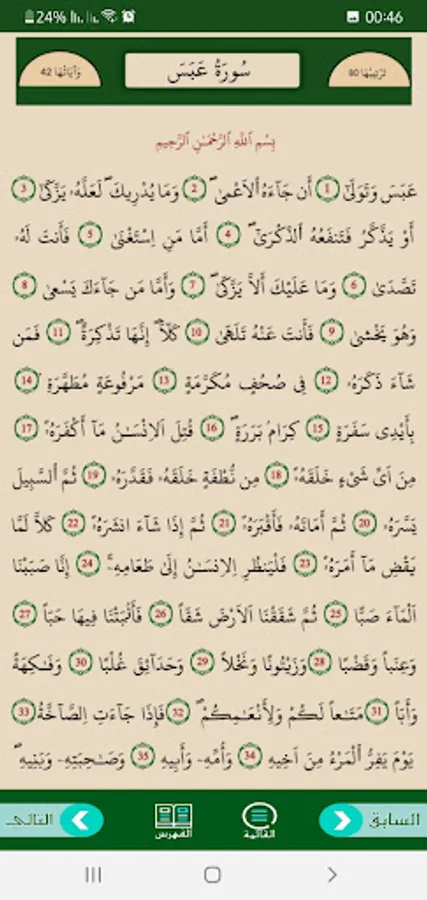 24%
00:46
وَآيَاتُهَا 42
سُورَةُ عَبَسَ
تَرْتِيبُهَا 80
بِسْمِ اللَّهِ الرَّحْمَٰنِ الرَّحِيمِ
عَبَسَ وَتَوَلَّىٰٓ 1 أَن جَآءَهُ اُلَاعْمَىٰ 2 وَمَا يُدْرِيكَ لَعَلَّهُۥ يَزَّكّ۪ىٰٓ 3
أَوْ يَذَّكَّرُ فَتَنفَعُهُ اُلذِّكْر۪ىٰٓ 4 أَمَّا مَنِ اِسْتَغْنَىٰ 5 فَأَنتَ لَهُۥ
تَصَّدَّىٰ 6 وَمَا عَلَيْكَ أَلَّا يَزَّكَّىٰ 7 وَأَمَّا مَن جَآءَكَ يَسْعَىٰ 8
وَهُوَ يَخْشَىٰ 9 فَأَنتَ عَنْهُ تَلَهَّىٰ 10 كَلَّآ إِنَّهَا تَذْكِرَةٌ 11 فَمَن
شَآءَ ذَكَرَهُۥ 12 فِي صُحُفٍ مُّكَرَّمَةٍ 13 مَّرْفُوعَةٍ مُّطَهَّرَةٍ 14
بِأَيْدِي سَفَرَةٍ 15 كِرَامٍۢ بَرَرَةٍ 16 قُتِلَ اَلِانسَٰنُ مَآ أَكْفَرَهُۥ 17
مِنَ اَيِّ شَيْءٍ خَلَقَهُۥ 18 مِن نُّطْفَةٍ خَلَقَهُۥ فَقَدَّرَهُۥ 19 ثُمَّ اَلسَّبِيلَ
يَسَّرَهُۥ 20 ثُمَّ أَمَاتَهُۥ فَأَقْبَرَهُۥ 21 ثُمَّ إِذَا شَآءَ انشَرَهُۥ 22 كَلَّا لَمَّا
يَقْضِ مَآ أَمَرَهُۥ 23 فَلْيَنظُرِ اِلِانسَٰنُ إِلَىٰ طَعَامِهِۦٓ 24 إِنَّا صَبَبْنَا
اَلْمَآءَ صَبًّا 25 ثُمَّ شَقَقْنَا اَلَارْضَ شَقًّا 26 فَأَنۢبَتْنَا فِيهَا حَبًّا 27
وَعِنَبًا وَقَضْبًا 28 وَزَيْتُونًا وَنَخْلًا 29 وَحَدَآئِقَ غُلْبًا 30 وَفَٰكِهَةً
وَأَبًّا 31 مَّتَٰعًا لَّكُمْ وَلِأَنْعَٰمِكُمْ 32 فَإِذَا جَآءَتِ اِلصَّآخَّةُ 33
يَوْمَ يَفِرُّ اُلْمَرْءُ مِنَ اَخِيهِ 34 وَأُمِّهِۦ وَأَبِيهِ 35 وَصَٰحِبَتِهِۦ وَبَنِيهِ
السابق
القائمة
الفهرس
التالى